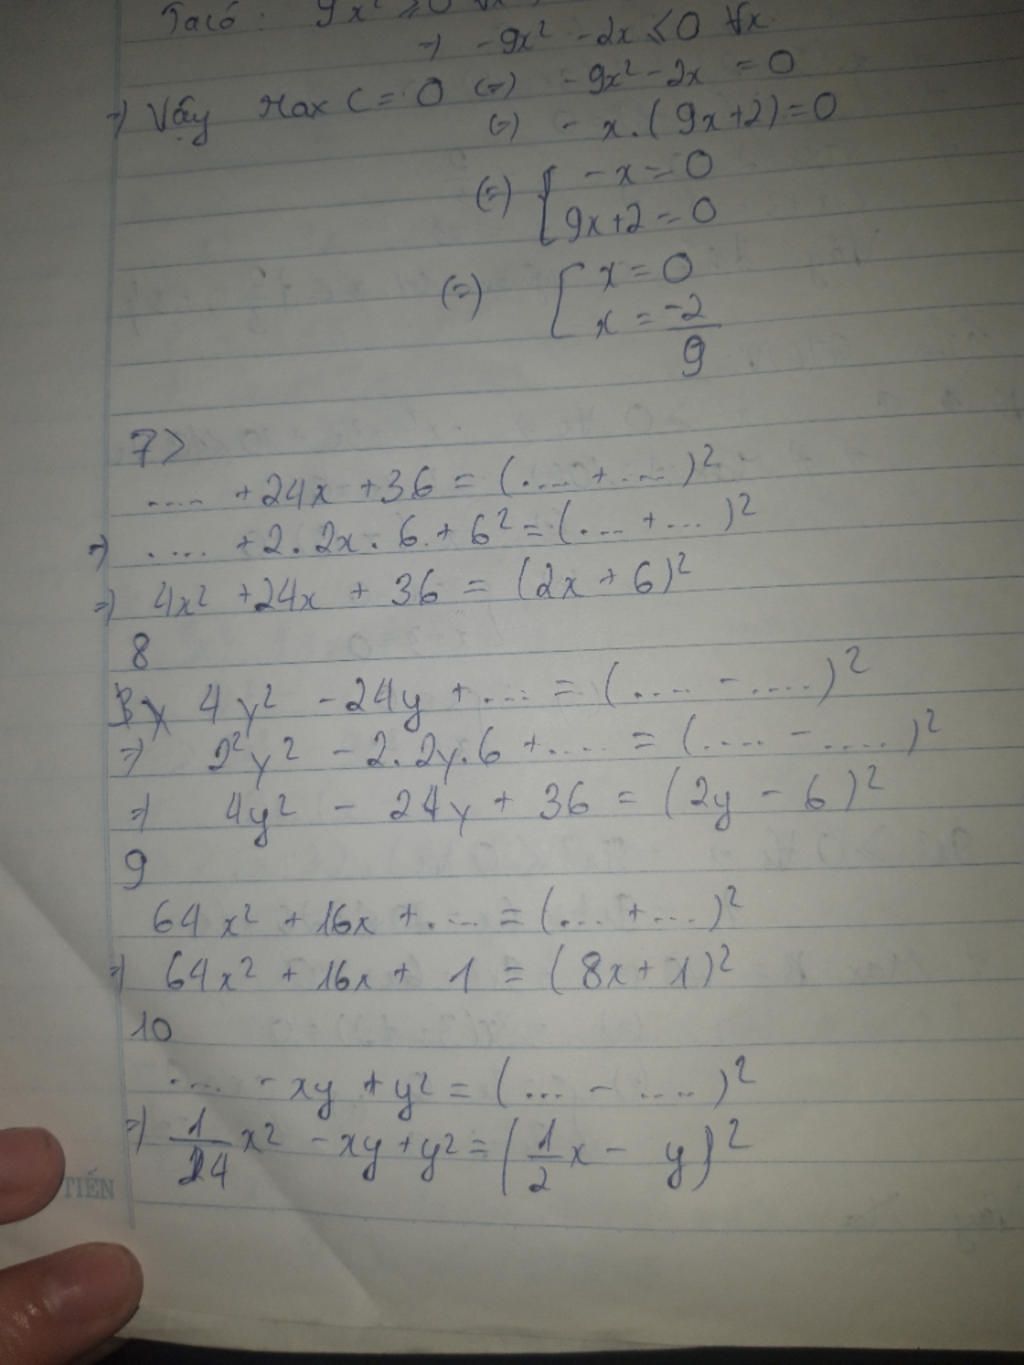 Ta có: 9x² ≥ 0 ∀x
=> -9x² - 2x ≤ 0 ∀x
=> Vậy Max C = 0 (=) -9x² - 2x = 0
(=) - x.(9x+2)=0
(=) [ -x = 0
9x+2 = 0
(=) [ x = 0
x = -2/9
7>
.... +24x +36 = (.... + ....)²
=) .... +2.2x.6 + 6² = (.... + ...)²
=) 4x² +24x + 36 = (2x + 6)²
8
4y² - 24y + .... = (.... - ....)²
=) 2²y² - 2.2y.6 + .... = (.... - ....)²
=) 4y² - 24y + 36 = (2y - 6)²
9
64x² + 16x + .... = (.... + ...)²
=) 64x² + 16x + 1 = (8x + 1)²
10
.... - xy + y² = (... - ....)²
=) 1/4 x² - xy + y² = (1/2 x - y)²
TIẾN